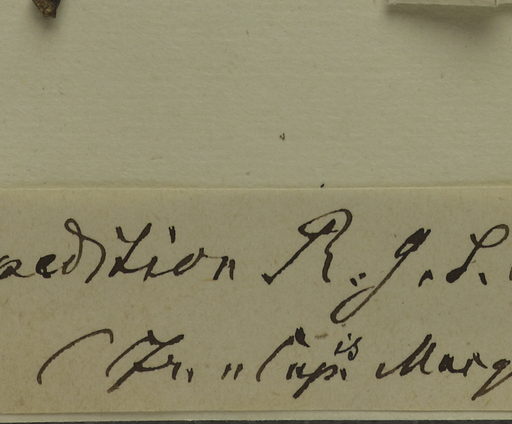 pedition R. G. S.
(Fr. "Cap.is Marq